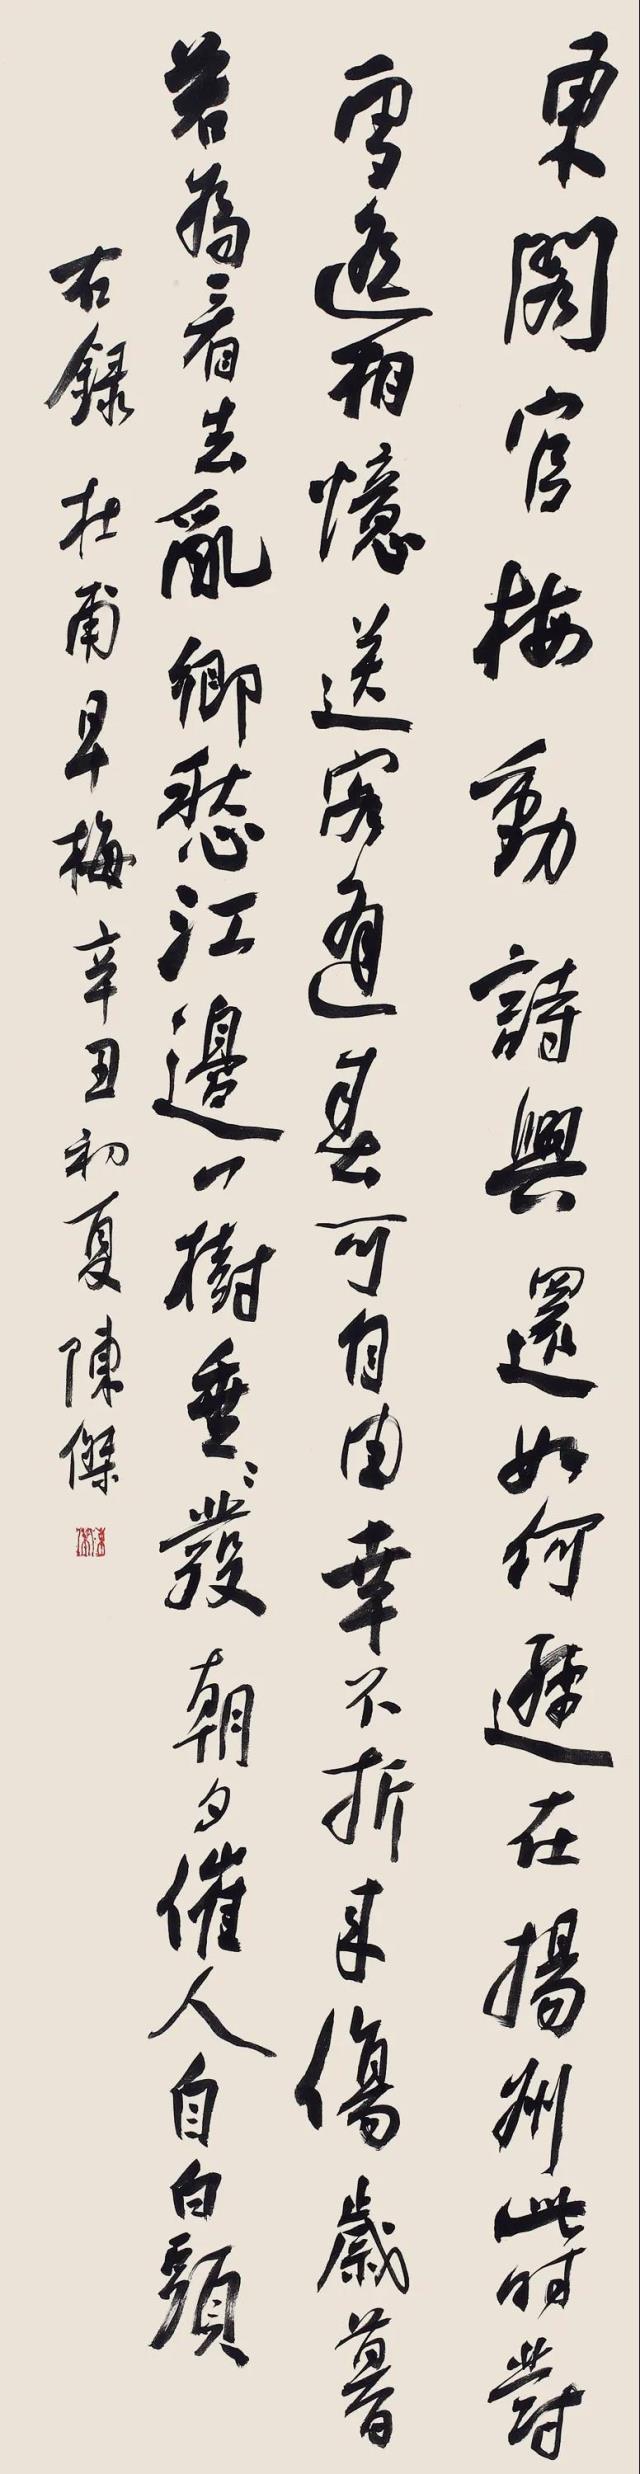 東閣官梅動詩興還如何遜在揚州此時對
雪遙相憶送客逢春可自由幸不折來傷歲暮
若為看去亂鄉愁江邊一樹垂〻發朝夕催人自白頭
右録杜甫早梅辛丑初夏陳傑